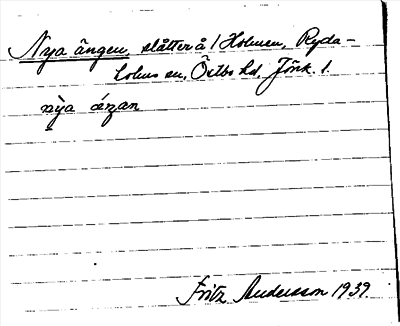 Nya ängen, slåtter å 1 Holmen, Ryda-
holms sn, Östbo hd, Jönk. l.
nỳa ǽŋan
Fritz Andersson 1939.